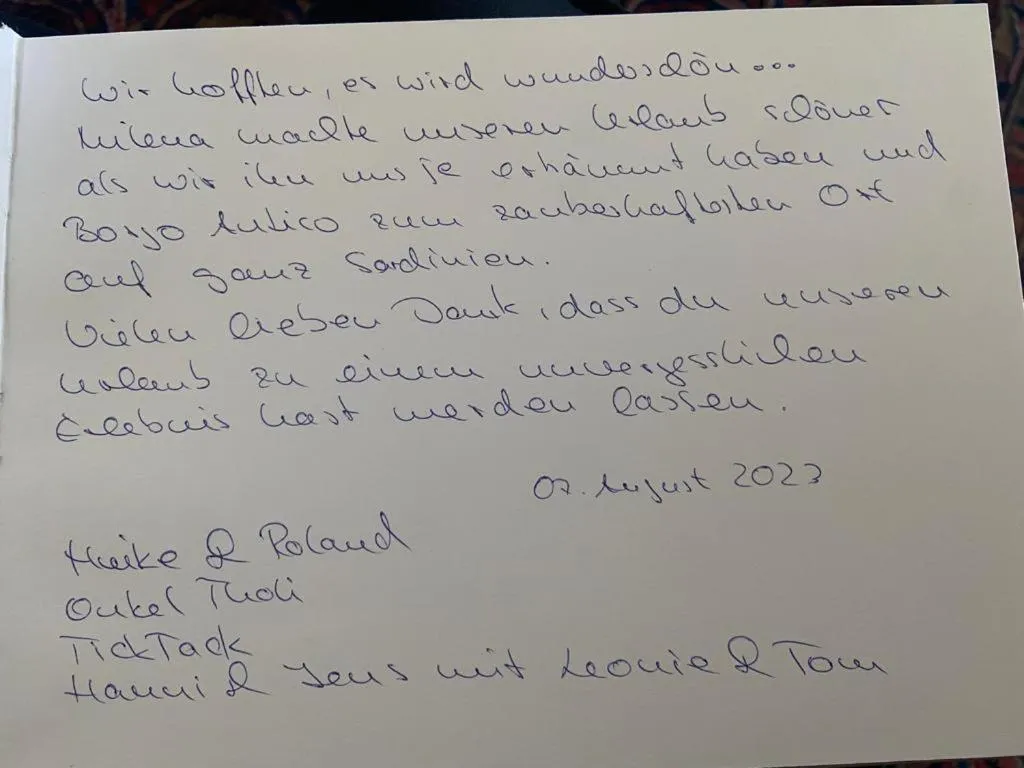 Wir hofften, es wird wunderschön...
Milena machte unseren Urlaub schöner
als wir ihn uns je erträumt haben und
Borgo Antico zum zauberhaftesten Ort
auf ganz Sardinien.
Vielen lieben Dank, dass du unseren
Urlaub zu einem unvergesslichen
Erlebnis hast werden lassen.
07. August 2023
Heike & Roland
Onkel Tholi
TickTack
Hanni & Jens mit Leonie & Tom